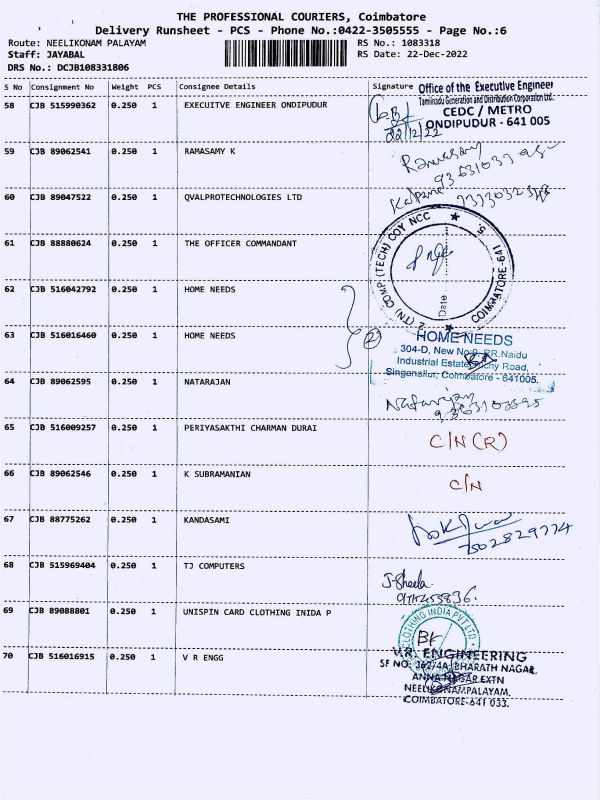 THE PROFESSIONAL COURIERS, Coimbatore
Delivery Runsheet - PCS - Phone No.:0422-3505555 - Page No.:6
Route: NEELIKONAM PALAYAM RS No.: 1083318
Staff: JAYABAL RS Date: 22-Dec-2022
DRS No.: DCJB108331806
S No Consignment No Weight PCS Consignee Details Signature
Office of the Executive Engineer
Tamilnadu Generation and Distribution Corporation Ltd.
CEDC / METRO
ONDIPUDUR - 641 005
22/12/22
58 CJB 515990362 0.250 1 EXECUITVE ENGINEER ONDIPUDUR
59 CJB 89062541 0.250 1 RAMASAMY K
Ramasamy
60 CJB 89047522 0.250 1 QVALPROTECHNOLOGIES LTD
Kalpana
61 CJB 88880624 0.250 1 THE OFFICER COMMANDANT
2 (TN) COMP (TECH) COY NCC
COIMBATORE-641
Date
62 CJB 516042792 0.250 1 HOME NEEDS
63 CJB 516016460 0.250 1 HOME NEEDS
2
HOME NEEDS
304-D, New No:9, RR.Naidu
Industrial Estate, Road,
Singanallur, Coimbatore - 641005.
64 CJB 89062595 0.250 1 NATARAJAN
Natarajan
65 CJB 516009257 0.250 1 PERIYASAKTHI CHARMAN DURAI
C/N (R)
66 CJB 89062546 0.250 1 K SUBRAMANIAN
C/N
67 CJB 88775262 0.250 1 KANDASAMI
7502829774
68 CJB 515969404 0.250 1 TJ COMPUTERS
J-Sheela
69 CJB 89088801 0.250 1 UNISPIN CARD CLOTHING INIDA P
CLOTHING INDIA PVT LTD
70 CJB 516016915 0.250 1 V R ENGG
V.R. ENGINEERING
SF NO: 362/4A, BHARATH NAGAR,
ANNA NAGAR EXTN
NEELIKONAMPALAYAM,
COIMBATORE-641 033.